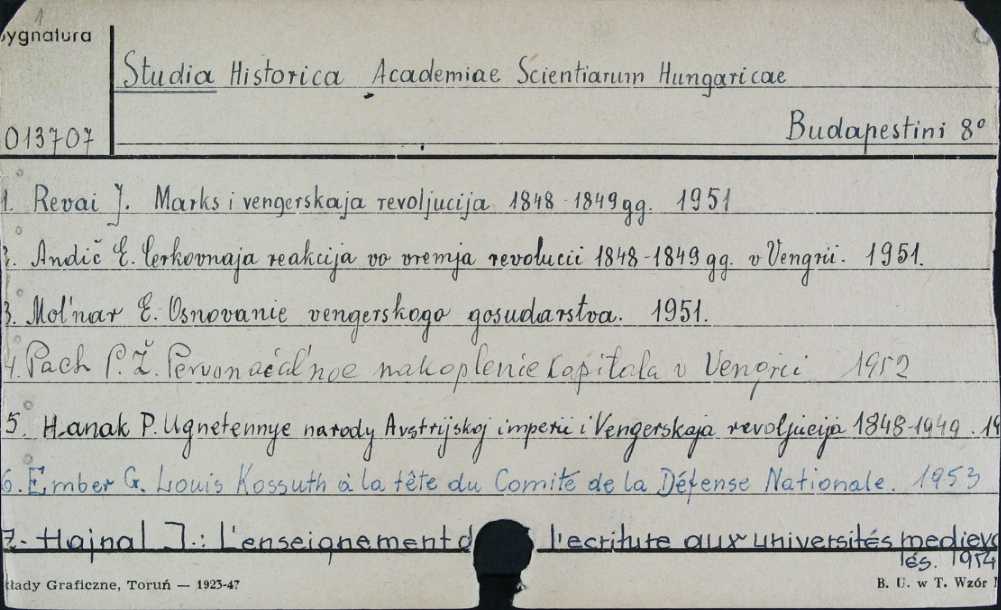 1
ygnatura
Studia Historica Academiae Scientiarum Hungaricae
013707
Budapestini 8°
1. Revai J. Marks i vengerskaja revoljucija 1848-1849 gg. 1951
2. Andič E. Cerkovnaja reakcija vo vremja revolucii 1848-1849 gg. v Vengrii. 1951.
3. Mol'nar E. Osnovanie vengerskogo gosudarstva. 1951.
4. Pach P. Ž. Pervonačal'noe nakoplenie kapitala v Vengrii 1952
5. Hanak P. Ugnetennye narody Avstrijskoj imperii i Vengerskaja revoljucija 1848-1949. 19
6. Ember G. Louis Kossuth à la tête du Comité de la Défense Nationale. 1953
7. Hajnal I.: L'enseignement d l'ecriture aux universités mediev
és. 1954
łady Graficzne, Toruń — 1923-47
B. U. w T. Wzór